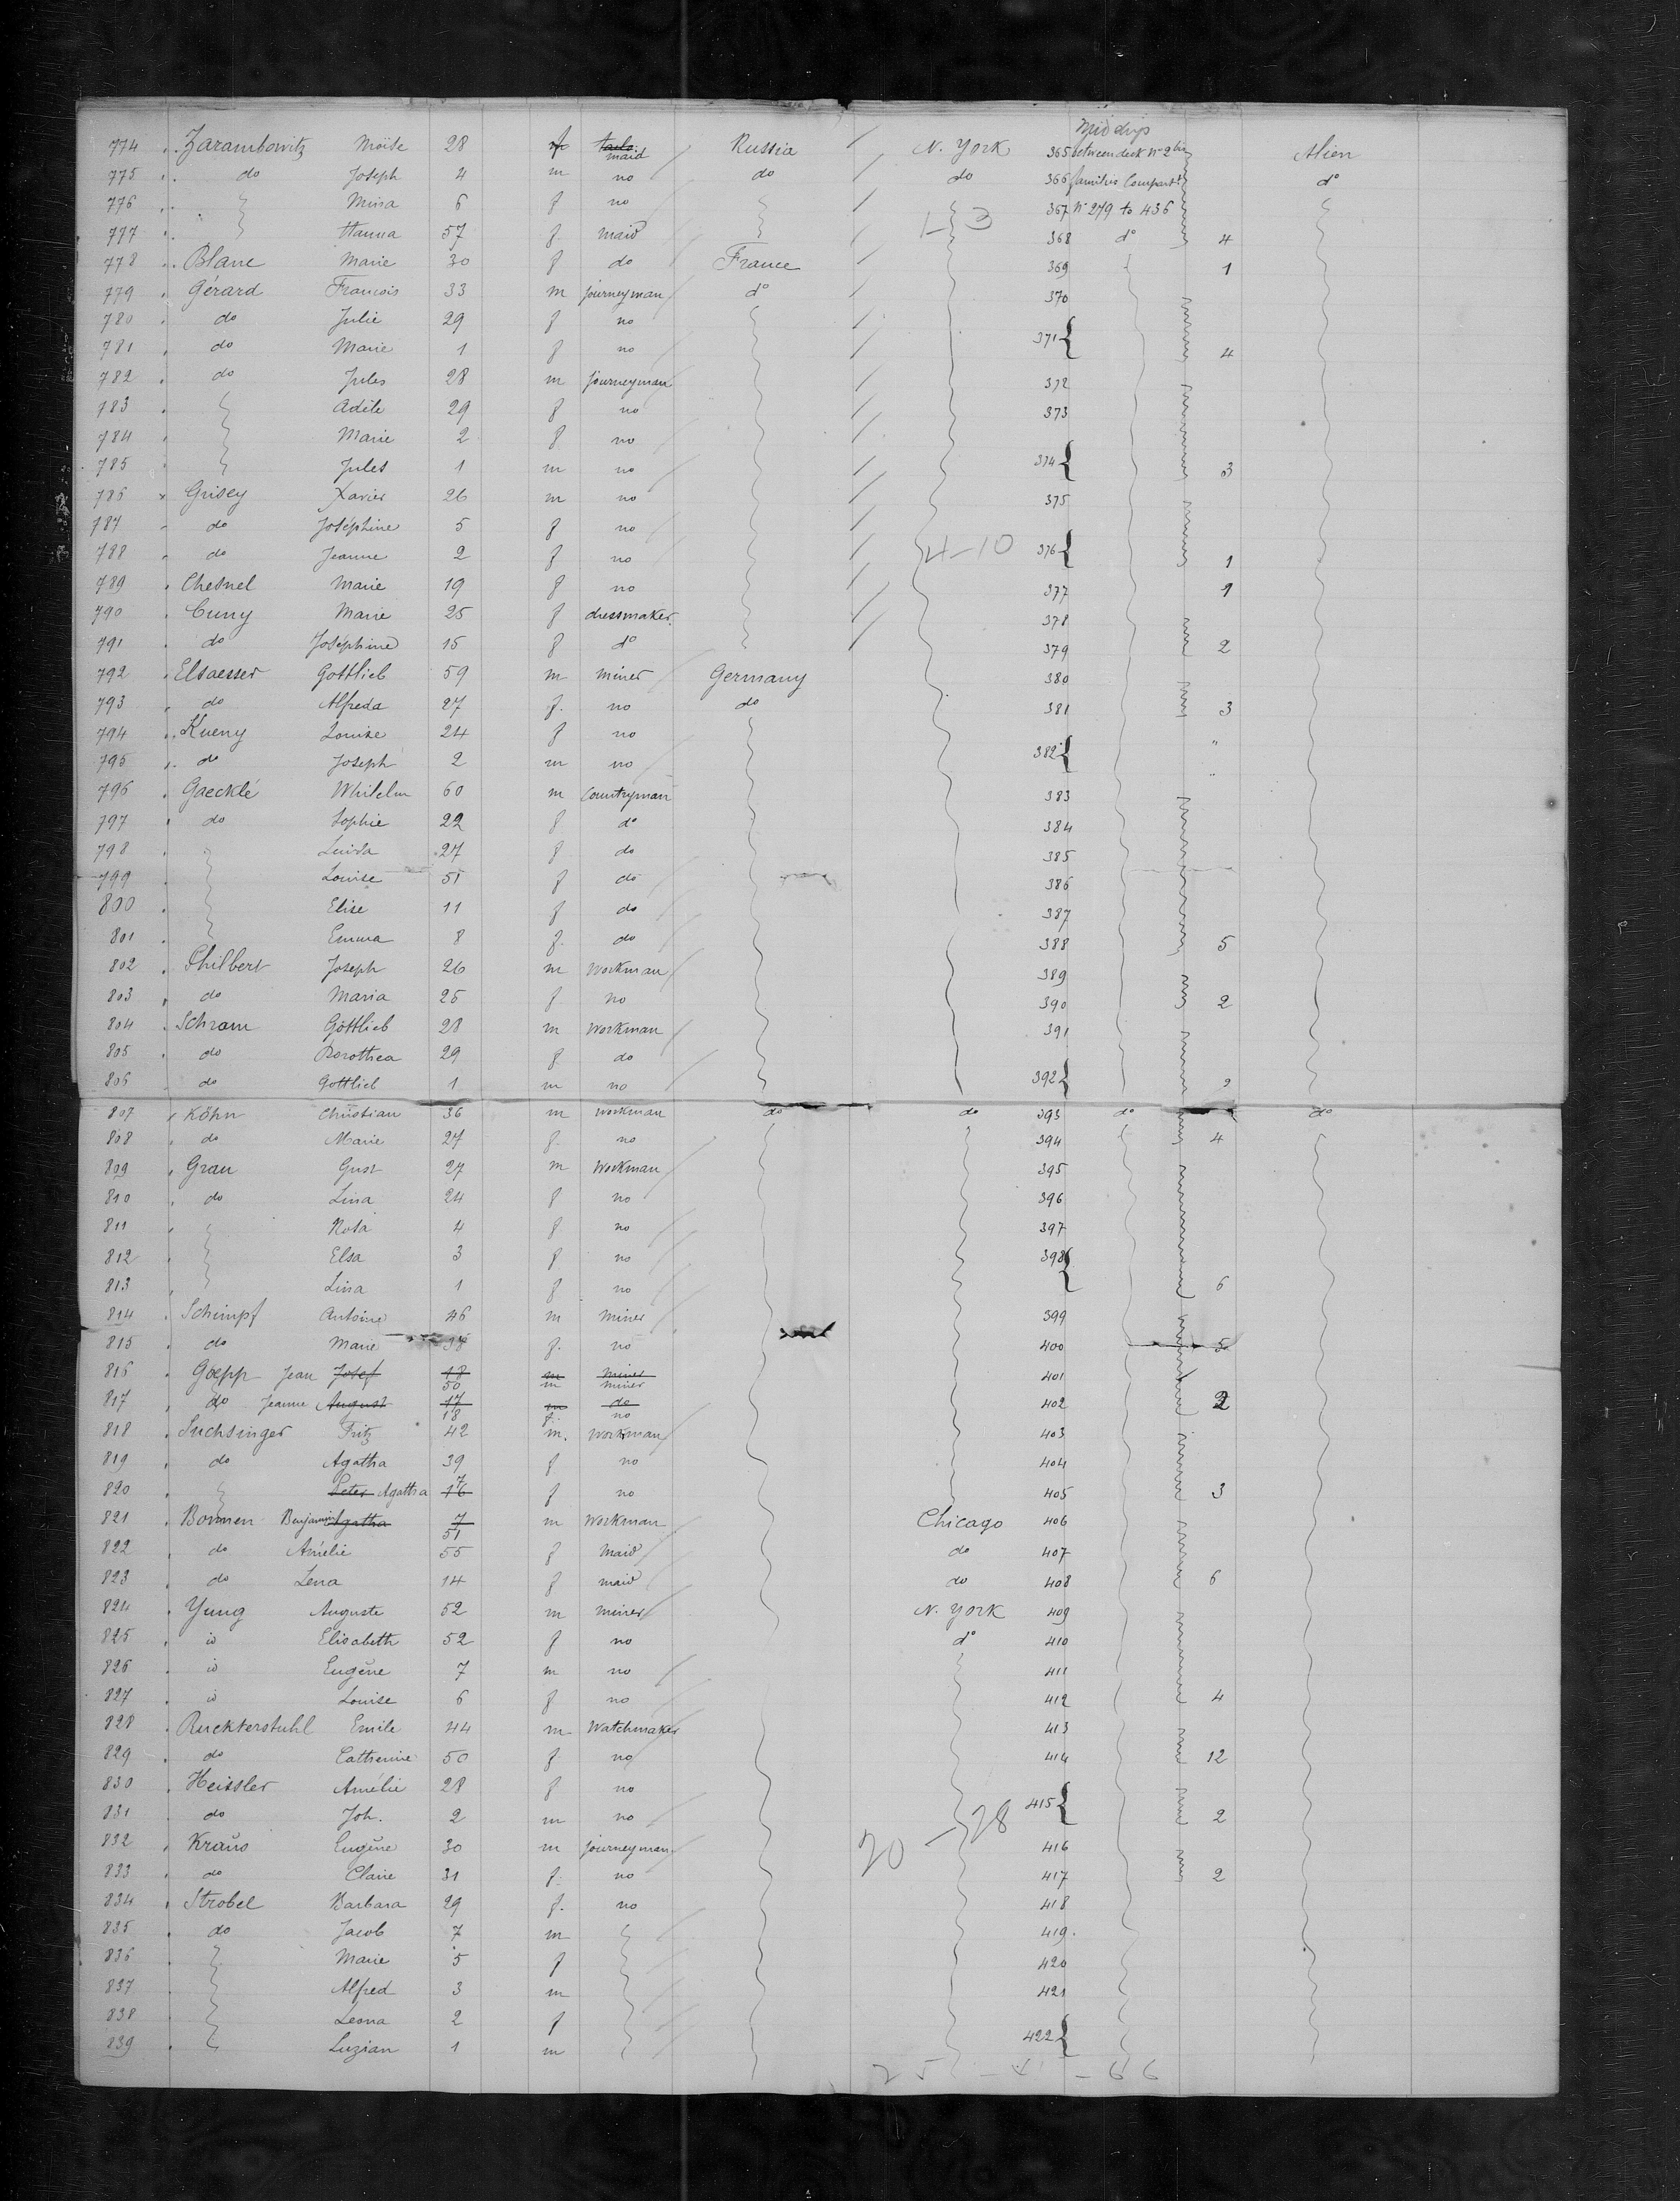 Midship
774 Zarambowitz Moïse 28 f maid Russia N. York 365 between deck No 2 bis Alien
775 do Joseph 4 m no do do 366 families Compartt do
776 Mina 6 f no 367 No 279 to 436
777 Hanna 57 f maid 1-3 368 do 4
778 Blanc Marie 30 f do France 369 1
779 Gérard François 33 m journeyman do 370
780 do Julie 29 f no
781 do Marie 1 f no 371 4
782 do Jules 28 m journeyman 372
783 Adèle 29 f no 373
784 Marie 2 f no
785 Jules 1 m no 374 3
786 Grisey Xavier 26 m no 375
787 do Joséphine 5 f no
788 do Jeanne 2 f no 4-10 376 1
789 Chesnel Marie 19 f no 377 1
790 Cuny Marie 25 f dressmaker 378
791 do Joséphine 15 f do 379 2
792 Elsaesser Gottlieb 59 m miner Germany 380
793 do Alfreda 27 f. no do 381 3
794 Kueny Louise 24 f no 382 "
795 do Joseph 2 m no "
796 Gaecklé Whilelm 60 m Countryman 383
797 do Sophie 22 f do 384
798 Luisa 27 f do 385
799 Louise 51 f do 386
800 Elise 11 f do 387
801 Emma 8 f. do 388 5
802 Philbert Joseph 26 m Workman 389
803 do Maria 25 f no 390 2
804 Schram Göttlieb 28 m Workman 391
805 do Dorothea 29 f do
806 do Gottlieb 1 m no 392 2
807 Köhn Christian 36 m workman do do 393 do do
808 do Marie 27 f. no 394 4
809 Grau Gust 27 m Workman 395
810 do Lina 24 f no 396
811 Rosa 4 f no 397
812 Elsa 3 f no 398
813 Lina 1 f no 6
814 Schimpf Antoine 46 m miner 399
815 do Marie 38 f. no 400 5
816 Goepp Jean Josef 18 m miner 401
50 m miner
817 do Jeanne August 17 m do 402 2
18 f. no
818 Suchsinger Fritz 42 m. Workman 403
819 do Agatha 39 f no 404
820 Peter Agatha 16 7 f no 405 3
821 Bonnen Benjamin Agatha 7 m Workman Chicago 406
51
822 do Amélie 55 f maid do 407
823 do Lena 14 f maid do 408 6
824 Yung Auguste 52 m miner N. York 409
825 id Elisabeth 52 f no do 410
826 id Eugène 7 m no 411
827 id Louise 6 f no 412 4
828 Ruckterstuhl Emile 44 m Watchmaker 413
829 do Catherine 50 f no 414 12
830 Heissler Amélie 28 f no
831 do Joh. 2 m no 415 2
832 Kraus Eugène 30 m journeyman 20-28 416
833 do Claire 31 f. no 417 2
834 Strobel Barbara 29 f. no 418
835 do Jacob 7 m 419.
836 Marie 5 f 420
837 Alfred 3 m 421
838 Leona 2 f
839 Luzian 1 m 422